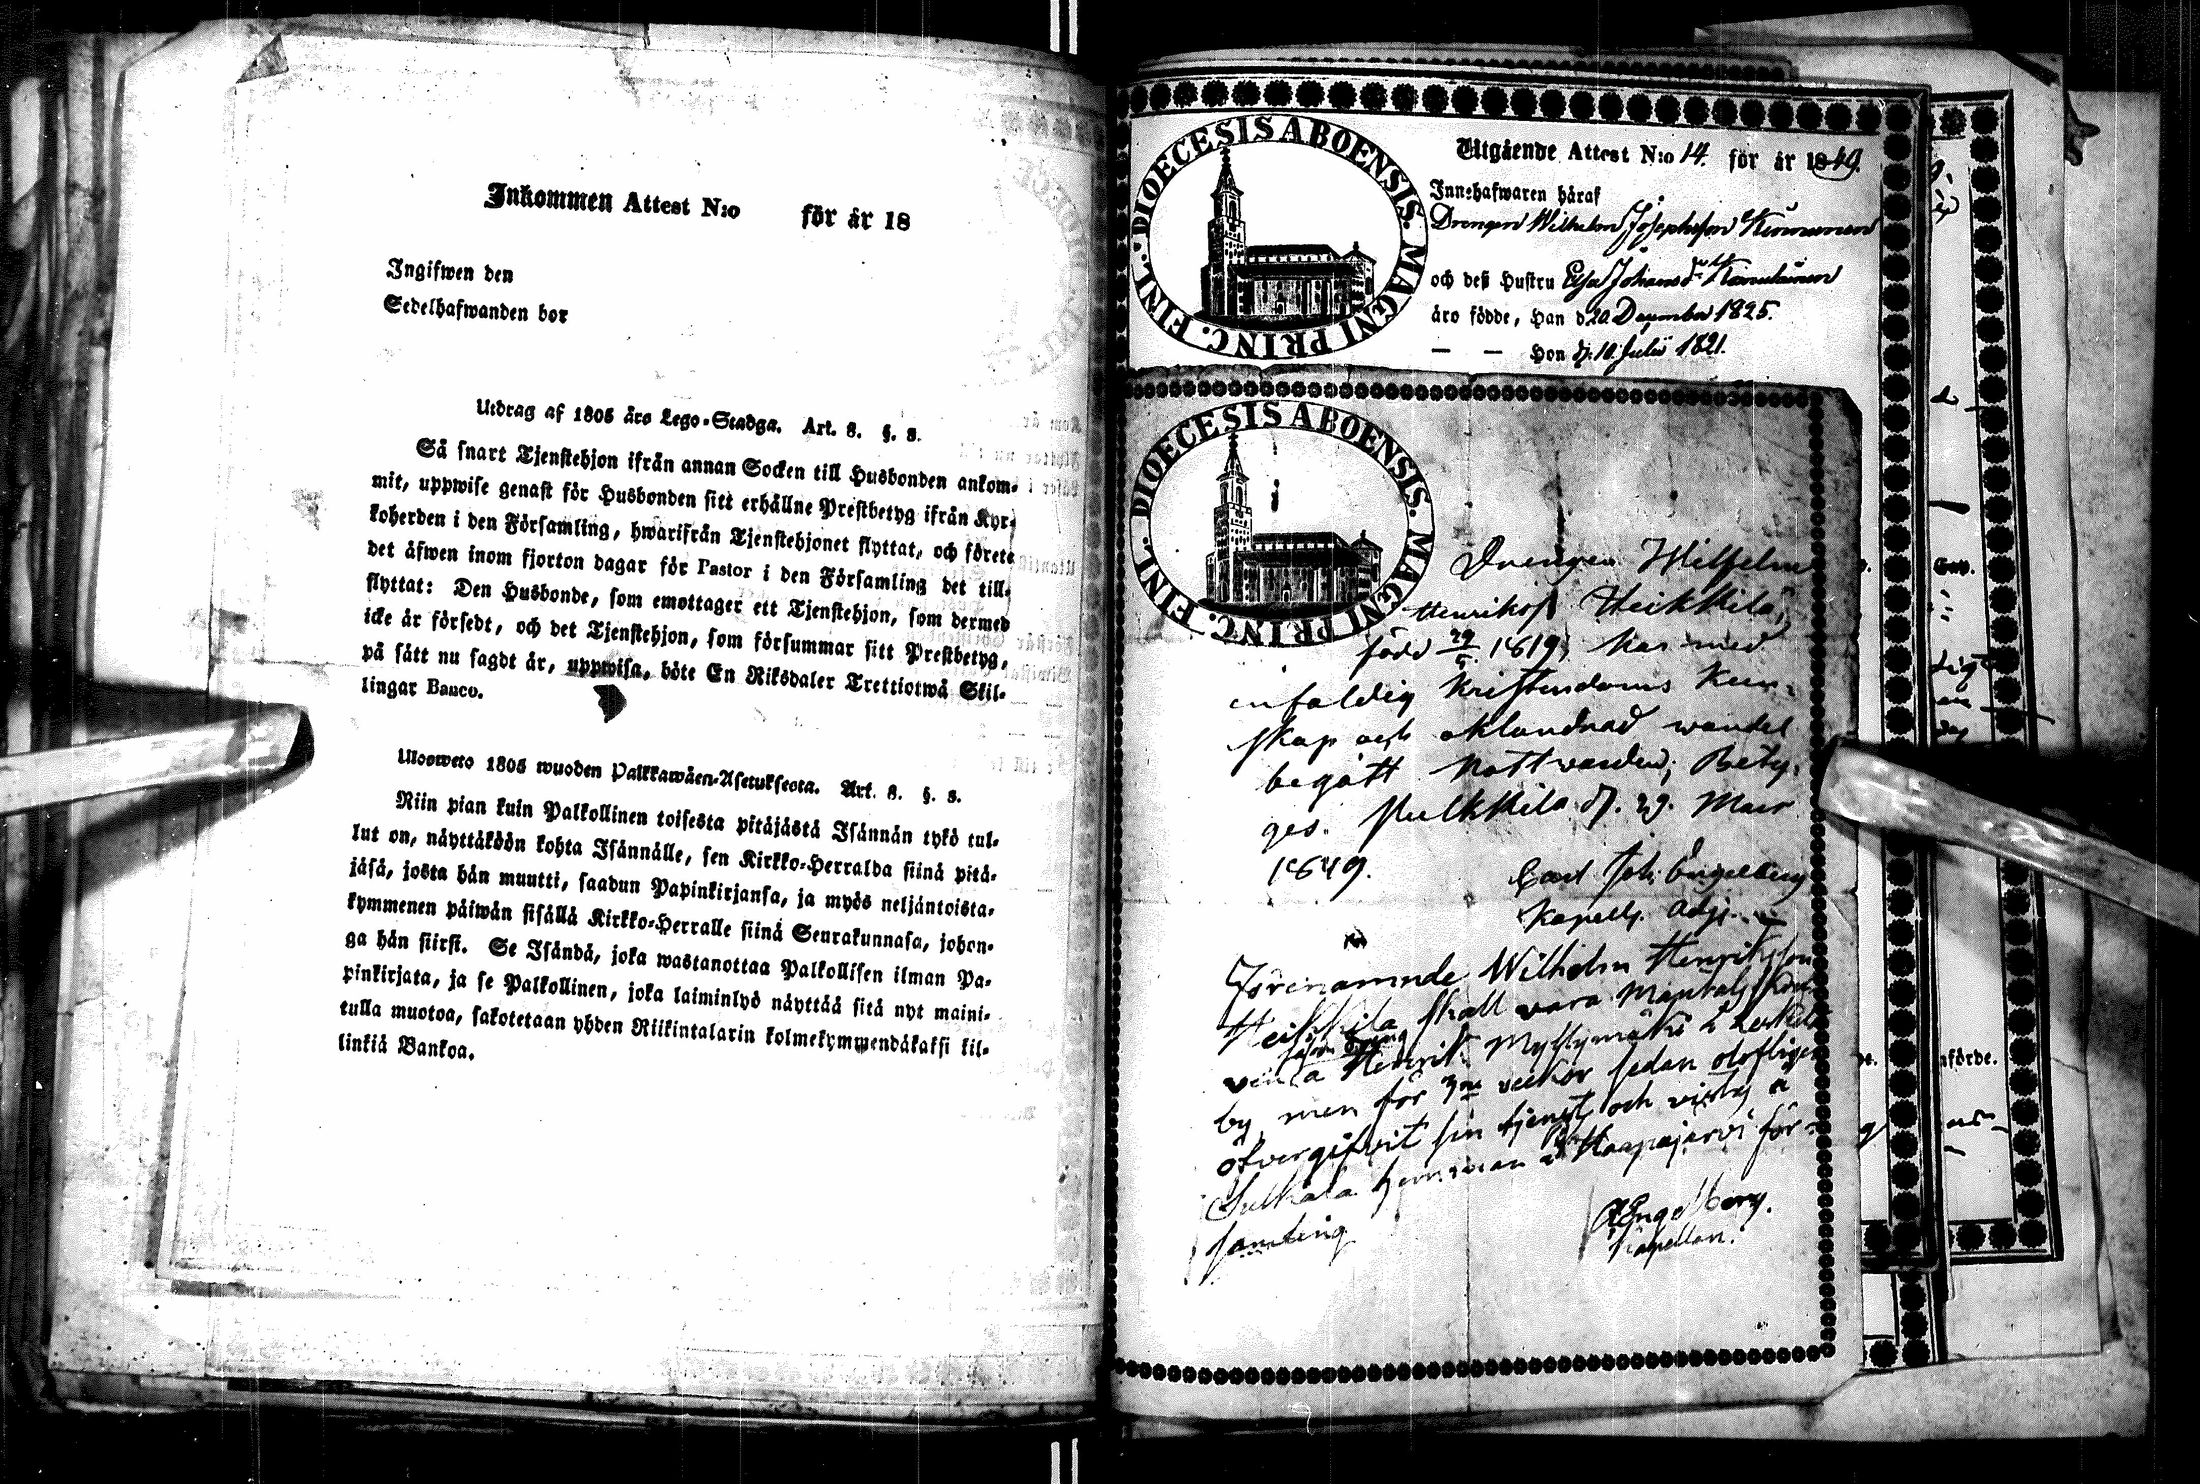 Inkommen Attest N:o för år 18
Ingifwen den
Sedelhafwanden bor
Utdrag af 1805 års Lego-Stadga. Art. 8. §. 8.
Så snart Tjenstehjon ifrån annan Socken till Husbonden ankom-
mit, uppwise genast för Husbonden sitt erhållne Prestbetyg ifrån Kyr-
koherden i den Församling, hwarifrån Tjenstehjonet flyttat, och förete
det äfwen inom fjorton dagar för Pastor i den Församling det till-
flyttat: Den Husbonde, som emottager ett Tjenstehjon, som dermed
icke är försedt, och det Tjenstehjon, som försummar sitt Prestbetyg,
på sätt nu sagdt är, uppwisa, böte En Riksdaler Trettiotwå Skil-
lingar Banco.
Ulosweto 1805 wuoden Palkkawäen-Asetuksesta. Art. 8. §. 8.
Niin pian kuin Palkollinen toisesta pitäjästä Isännän tykö tul-
lut on, näyttäköön kohta Isännälle, sen Kirkko-Herralda siinä pitä-
jäsä, josta hän muutti, saadun Papinkirjansa, ja myös neljäntoista-
kymmenen päiwän sisällä Kirkko-Herralle siinä Seurakunnasa, johon-
ga hän siirsi. Se Isändä, joka wastanottaa Palkollisen ilman Pa-
pinkirjata, ja se Palkollinen, joka laiminlyö näyttää sitä nyt maini-
tulla muotoa, sakotetaan yhden Riikintalarin kolmekymmendäkaksi kil-
linkiä Bankoa.
DIOECESIS ABOENSIS. MAGNI PRINC. FINL.
Utgående Attest N:o 14. för år 1849.
Innehafwaren häraf
Drengen Wilhelm Josephsson Kinnunen
och deß Hustru Elsa Johansd:r
äro födde, Han d. 20 December 1825.
— — Hon d. 10 Julii 1821.
DIOECESIS ABOENSIS. MAGNI PRINC. FINL.
Drengen Wilhelm
Henrikss Heikkilä,
född 29/5 1819, har med
enfaldig Kristendoms Kun-
skap och oklandrad wandel
begått Nattvarden; Bety-
ges. Pulkkila d. 29. Mars
1849.
Carl Joh. Engelberg
Kapells Adj.
Förenämnde Wilhelm Henriksson
Heikkilä skall vara Mantalsskrif-
Henrik Myllymäki
by, men för veckor sedan olofligen
öfvergifvit sin tjenst och vistas å
hemman i Haapajärvi för-
samling
Engelberg.
Kapellan.